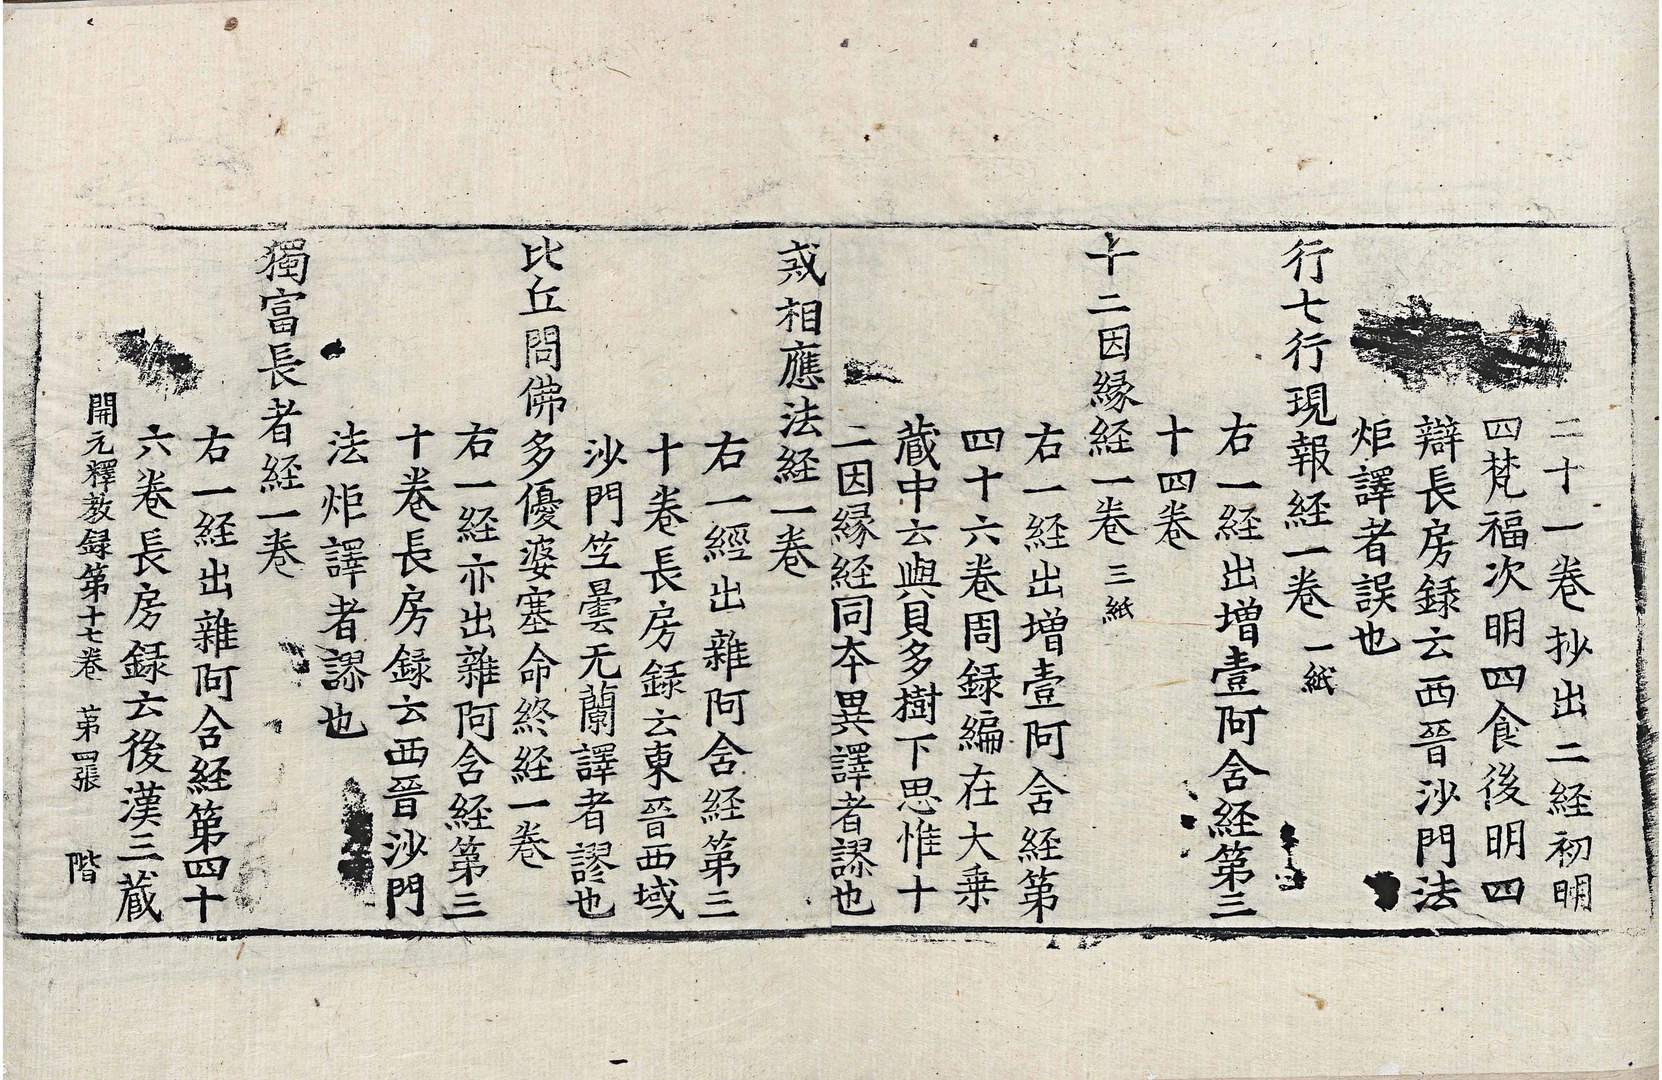 二十一卷抄出二経初明
四梵福次明四食後明四
辯長房録云西晉沙門法
炬譯者誤也
行七行現報経一卷 一紙
右一経出增壹阿含経第三
十四卷
十二因縁経一卷 三紙
右一経出增壹阿含経第
四十六卷周録編在大乗
蔵中云與貝多樹下思惟十
二因縁経同夲異譯者謬也
戒相應法経一卷
右一經出雜阿含経第三
十卷長房録云東晉西域
沙門竺曇无蘭譯者謬也
比丘問佛多優婆塞命終経一卷
右一経亦出雜阿含経第三
十卷長房録云西晉沙門
法炬譯者謬也
獨富長者経一卷
右一経出雜阿含経第四十
六卷長房録云後漢三蔵
開元釋教録第十七卷 第四張 階